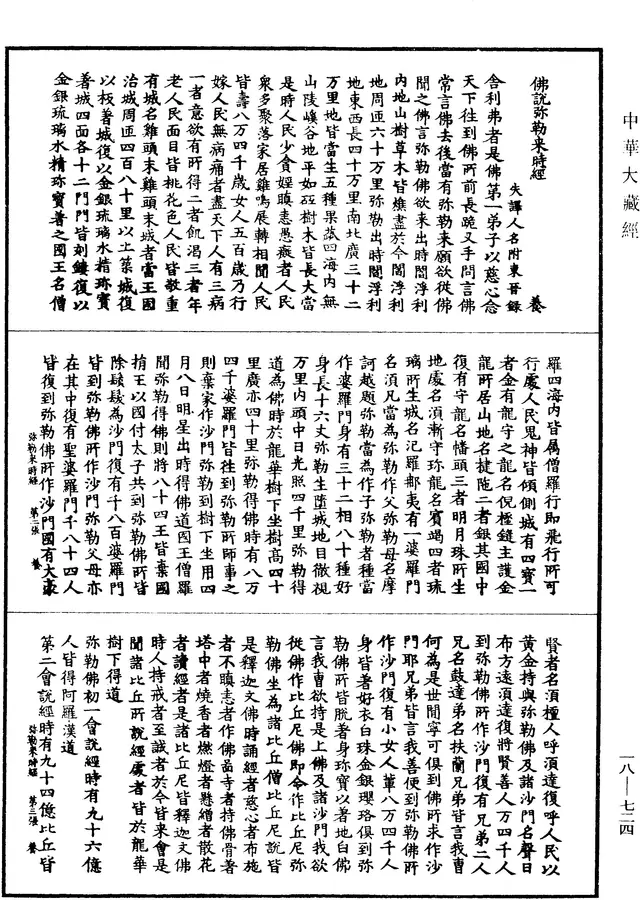 中華大藏經
佛說弥勒来時經
失譯人名附東晉録　養
舍利弗者是佛第一弟子以慈心念
天下往到佛所前長跪叉手問言佛
常言佛去後當有弥勒来願欲從佛
聞之佛言弥勒佛欲来出時閻浮利
内地山樹草木皆燋盡於今閻浮利
地周迊六十万里弥勒出時閻浮利
地東西長四十万里南北廣三十二
万里地皆當生五種果蓏四海内無
山陵嵠谷地平如砥樹木皆長大當
是時人民少貪婬瞋恚愚癡者人民
衆多聚落家居雞鳴展轉相聞人民
皆壽八万四千歲女人五百歲乃行
嫁人民無病痛者盡天下人有三病
一者意欲有所得二者飢渴三者年
老人民面目皆桃花色人民皆敬重
有城名雞頭末雞頭末城者當王國
治城周迊四百八十里以土築城復
以板著城復以金銀琉璃水精珎寶
著城四面各十二門門皆刻鏤復以
金銀琉璃水精珎寶著之國王名僧
羅四海内皆属僧羅行即飛行所可
行處人民鬼神皆傾側城有四寶一
者金有龍守之龍名倪檻鏠主護金
龍所居山地名揵陁二者銀其國中
復有守龍名幡頭三者明月珠所生
地處名須漸守珎龍名賓竭四者琉
璃所生城名氾羅那夷有一婆羅門
名須凡當為弥勒作父弥勒母名摩
訶越題弥勒當為作子弥勒者種當
作婆羅門身有三十二相八十種好
身長十六丈弥勒生墮城地目徹視
万里内頭中日光照四千里弥勒得
道為佛時於龍華樹下坐樹高四十
里廣亦四十里弥勒得佛時有八万
四千婆羅門皆往到弥勒所師事之
則棄家作沙門弥勒到樹下坐用四
月八日明星出時得佛道國王僧羅
聞弥勒得佛則將八十四王皆棄國
捐王以國付太子共到弥勒佛所皆
除鬚髮為沙門復有千八百婆羅門
皆到弥勒佛所作沙門弥勒父母亦
在其中復有聖婆羅門千八十四人
皆復到弥勒佛所作沙門國有大豪
弥勒来時經　第二張　養
賢者名須檀人呼須達復呼人民以
黄金持與弥勒佛及諸沙門名聲日
布方遠須達復將賢善人万四千人
到弥勒佛所作沙門復有兄弟二人
兄名鼓達弟名扶蘭兄弟皆言我曹
何為是世間寧可俱到佛所求作沙
門耶兄弟皆言我善便到弥勒佛所
作沙門復有小女人軰八万四千人
身皆著好衣白珠金銀瓔珞俱到弥
勒佛所皆脱著身珎寶以著地白佛
言我曹欲持是上佛及諸沙門我欲
從佛作比丘尼佛即令作比丘尼弥
勒佛坐為諸比丘僧比丘尼說皆
是釋迦文佛時誦經者慈心者布施
者不瞋恚者作佛啚寺者持佛骨著
塔中者燒香者燃燈者懸繒者散花
者讀經者是諸比丘尼皆釋迦文佛
時人持戒者至誠者於今皆来會是
聞諸比丘所說經處者皆於龍華
樹下得道
弥勒佛初一會說經時有九十六億
人皆得阿羅漢道
第二會說經時有九十四億比丘皆
弥勒来時經　第三張　養
一八—七二四